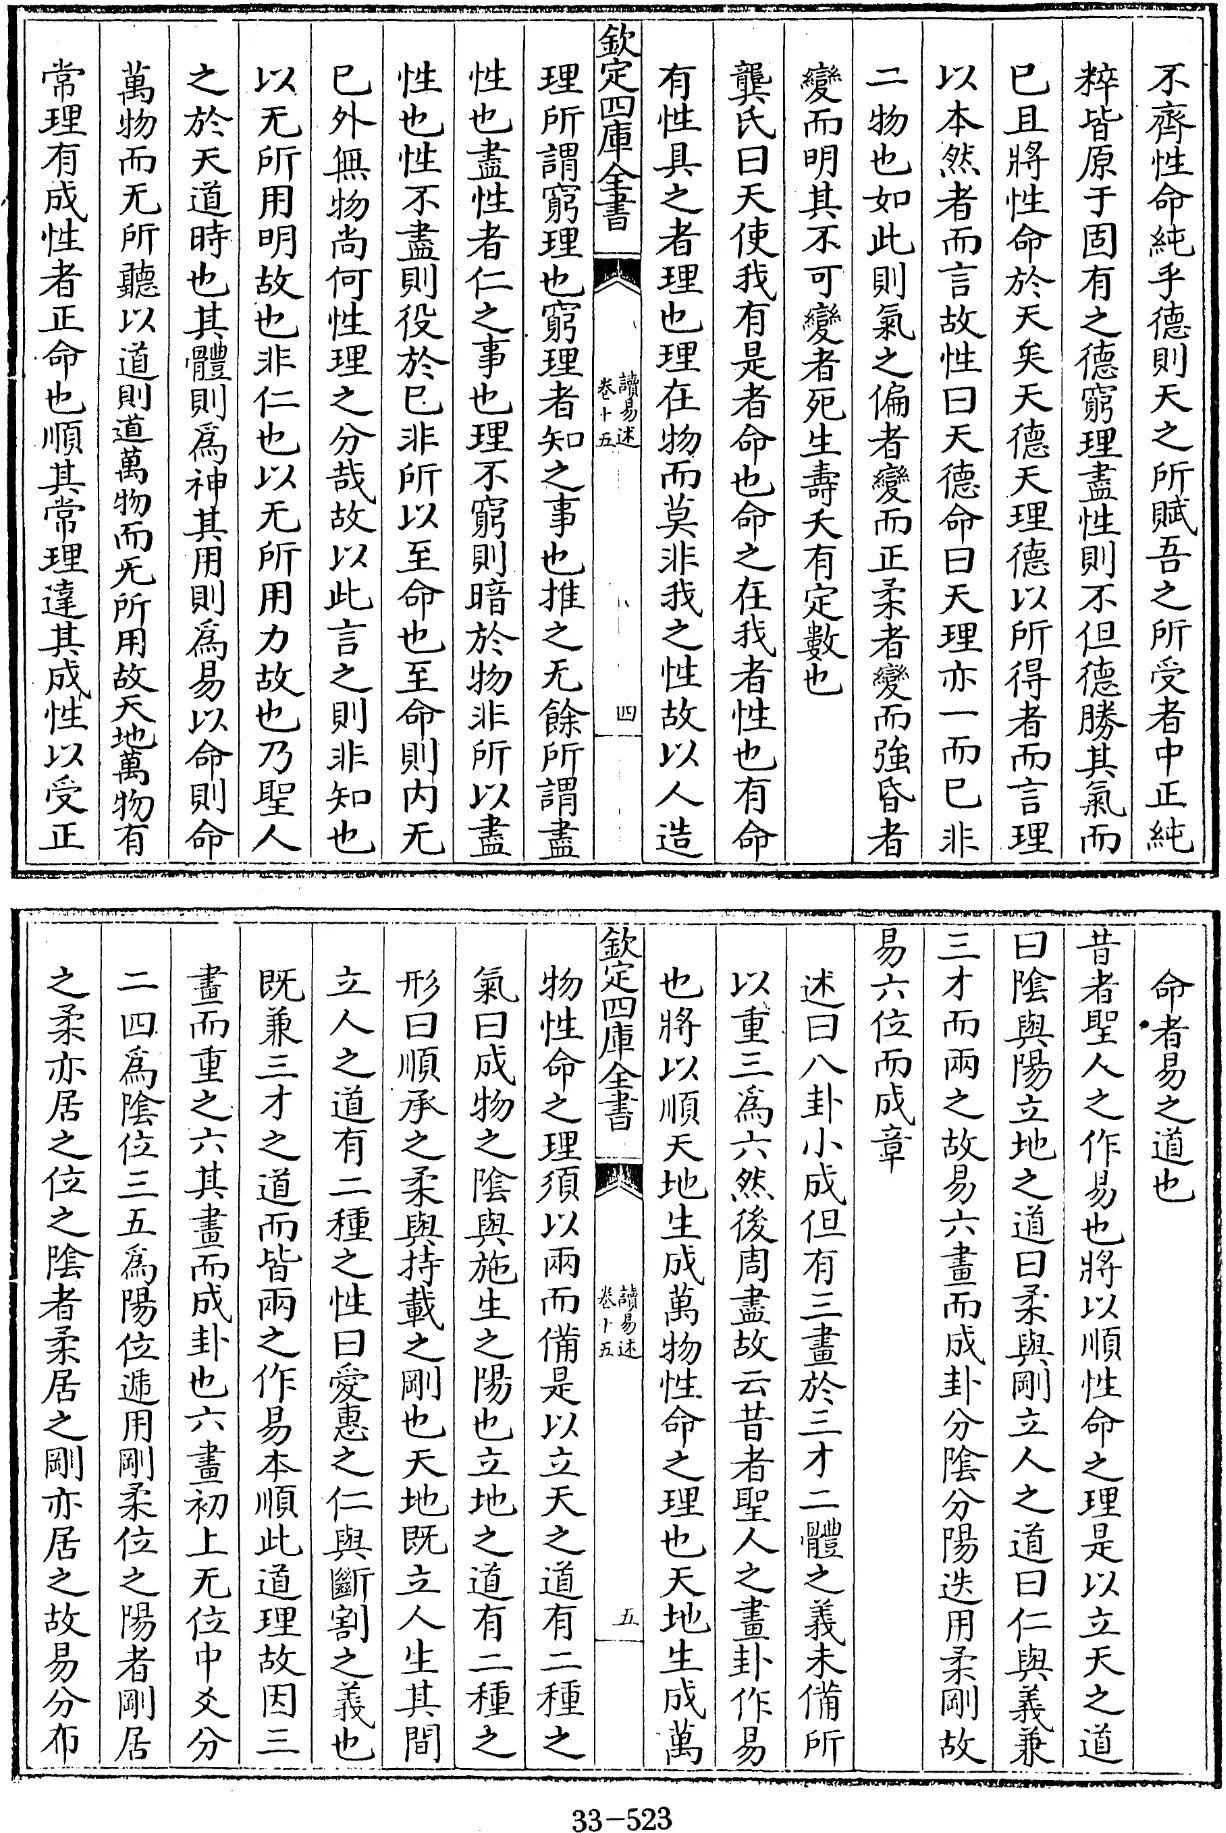 不齊性命純乎德則天之所賦吾之所受者中正純
粹皆原于固有之德窮理盡性則不但德勝其氣而
已且將性命於天矣天德天理德以所得者而言理
以本然者而言故性曰天德命曰天理亦一而已非
二物也如此則氣之偏者變而正柔者變而強昏者
變而明其不可變者死生壽夭有定數也
龔氏曰天使我有是者命也命之在我者性也有命
有性具之者理也理在物而莫非我之性故以人造
欽定四庫全書
讀易述
卷十五
四
理所謂窮理也窮理者知之事也推之无餘所謂盡
性也盡性者仁之事也理不窮則暗於物非所以盡
性也性不盡則役於己非所以至命也至命則内无
已外無物尚何性理之分哉故以此言之則非知也
以无所用明故也非仁也以无所用力故也乃聖人
之於天道時也其體則爲神其用則爲易以命則命
萬物而无所聽以道則道萬物而无所用故天地萬物有
常理有成性者正命也順其常理達其成性以受正
命者易之道也
昔者聖人之作易也將以順性命之理是以立天之道
曰陰與陽立地之道曰柔與剛立人之道曰仁與義兼
三才而兩之故易六畫而成卦分陰分陽迭用柔剛故
易六位而成章
述曰八卦小成但有三畫於三才二體之義未備所
以重三爲六然後周盡故云昔者聖人之畫卦作易
也將以順天地生成萬物性命之理也天地生成萬
欽定四庫全書
讀易述
卷十五
五
物性命之理須以兩而備是以立天之道有二種之
氣曰成物之陰與施生之陽也立地之道有二種之
形曰順承之柔與持載之剛也天地既立人生其間
立人之道有二種之性曰愛惠之仁與斷割之義也
既兼三才之道而皆兩之作易本順此道理故因三
畫而重之六其畫而成卦也六畫初上无位中爻分
二四爲陰位三五爲陽位遞用剛柔位之陽者剛居
之柔亦居之位之陰者柔居之剛亦居之故易分布
33-523